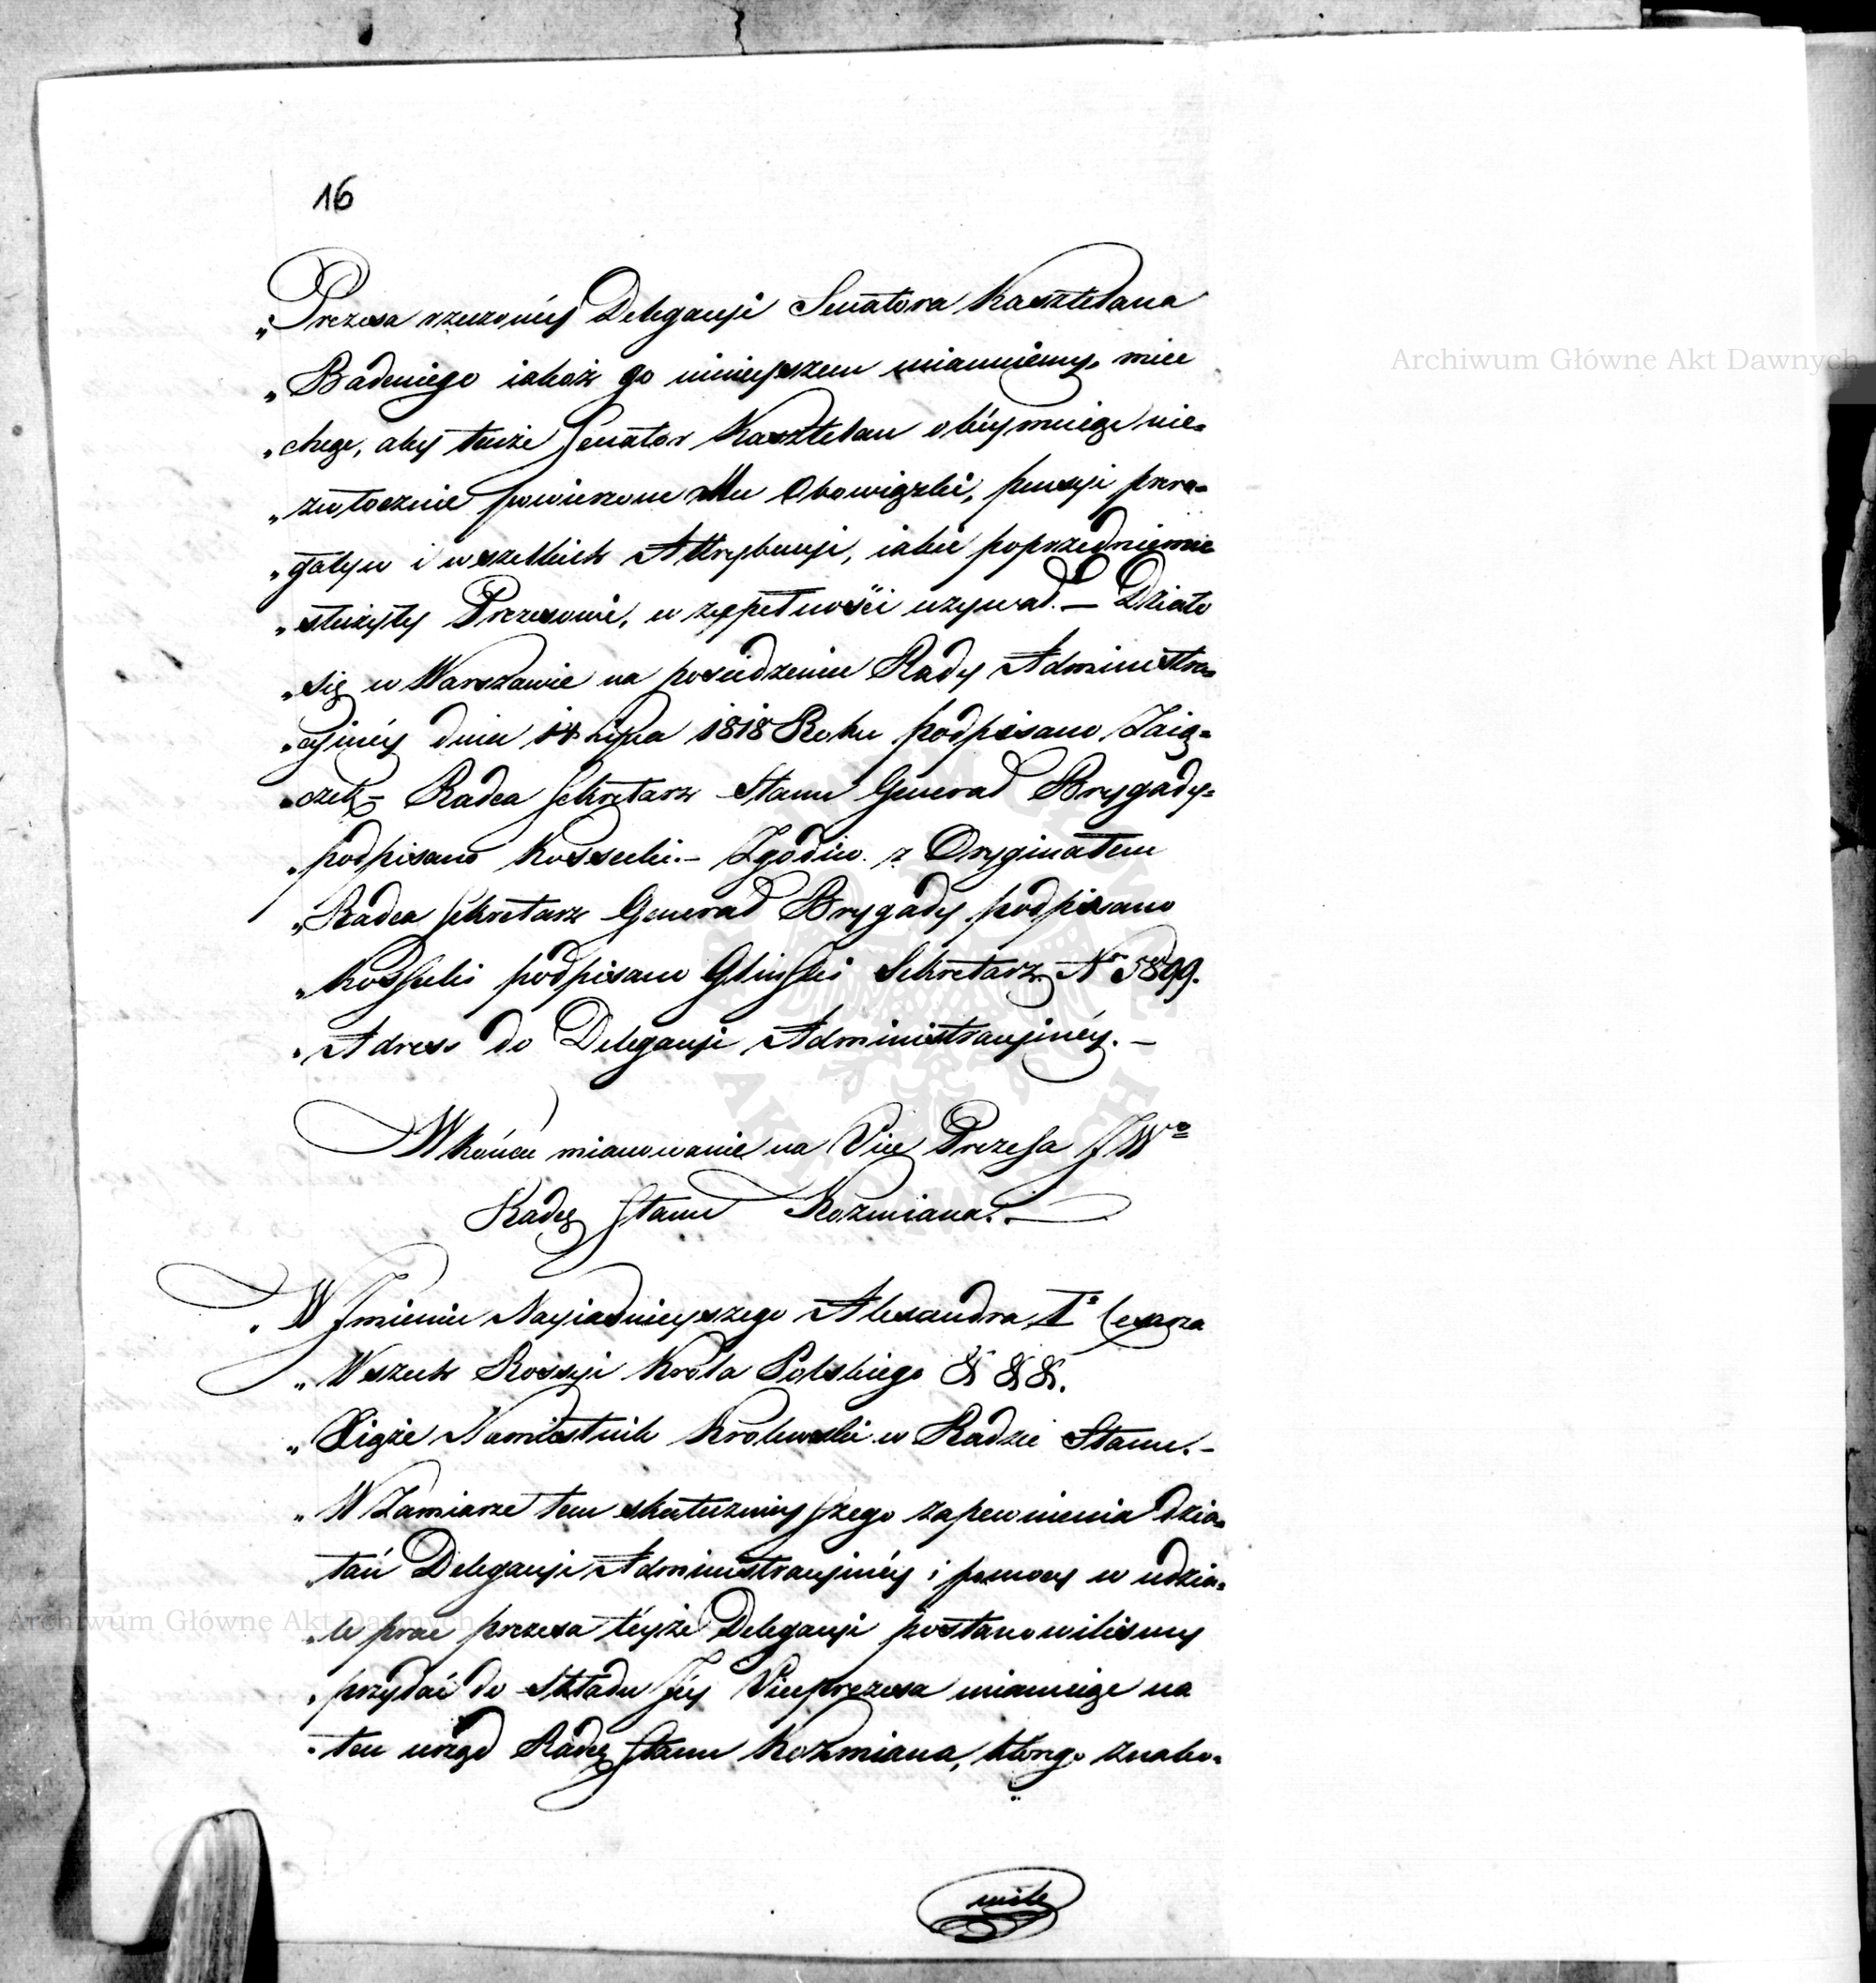 16
„Prezesa rzeczonéy Delegacyi Senatora Kasztelana
„Badeniego iakoż go ninieyszem mianuiemy, mieć
„chcąc, aby tenże Senator Kasztelan obéymuiąc nie-
„zwłocznie powierzone Mu Obowiązki, pensyi prero-
„gatyw i wszelkich Attrybucyi, iakie poprzedniemu
„służyły Prezesowi, w zupełności używał. — Działo
„się w Warszawie na posiedzeniu Rady Administra-
„cyinéy dnia 14 Lipca 1818 Roku podpisano Zaią-
„czek — Radca Sekretarz Stanu Generał Brygady-
„podpisano Kossecki. — Zgodno z Oryginałem
„Radca Sekretarz Generał Brygady podpisano
„Kossecki podpisano Gliński Sekretarz Nr 5899.
„Adress do Delegacyi Administracyinéy. —
W końcu mianowanie na Vice Prezesa JWo
Radcę Stanu Kozmiana. —
„W Jmieniu Nayiaśnieyszego Alexandra Io Cesarza
„Wszech Rossyi Króla Polskiego & & &.
„Xiąże Namiestnik Królewski w Radzie Stanu. —
„W Zamiarze tem skutecznieyszego zapewnienia dzia-
„łań Delegacyi Administracyinéy i pomocy w udzia-
„le prac prezesa téyże Delegacyi postanowiliśmy
„przydać do składu Jéy Viceprezesa mianuiąc na
„ten urząd Radcę Stanu Kozmiana, którego znako-
mite
Archiwum Główne Akt Dawnych
Archiwum Główne Akt Dawnych